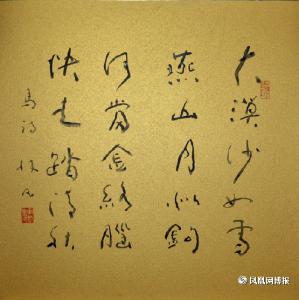 大漠沙如雪
燕山月似鉤
何當金絡腦
快走踏清秋
馬詩
凤凰网博报